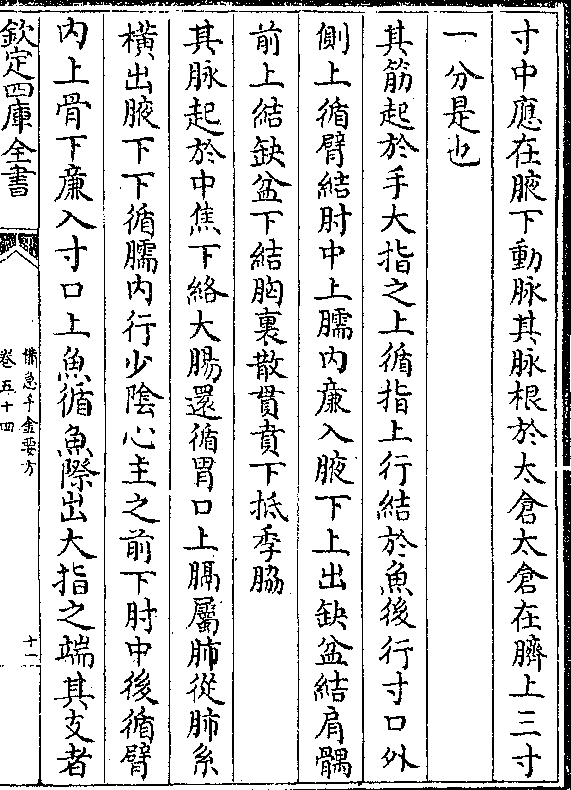 寸中應在腋下動脉其脉根於太倉太倉在臍上三寸
一分是也
其筋起於手大指之上循指上行結於魚後行寸口外
側上循臂結肘中上臑內廉入腋下上出缺盆結肩髃
前上結缺盆下結胸裏散貫賁下抵季脇
其脉起於中焦下絡大腸還循胃口上膈屬肺從肺系
橫出腋下下循臑內行少陰心主之前下肘中後循臂
內上骨下廉入寸口上魚循魚際出大指之端其支者
欽定四庫全書
備急千金要方
卷五十四
十一